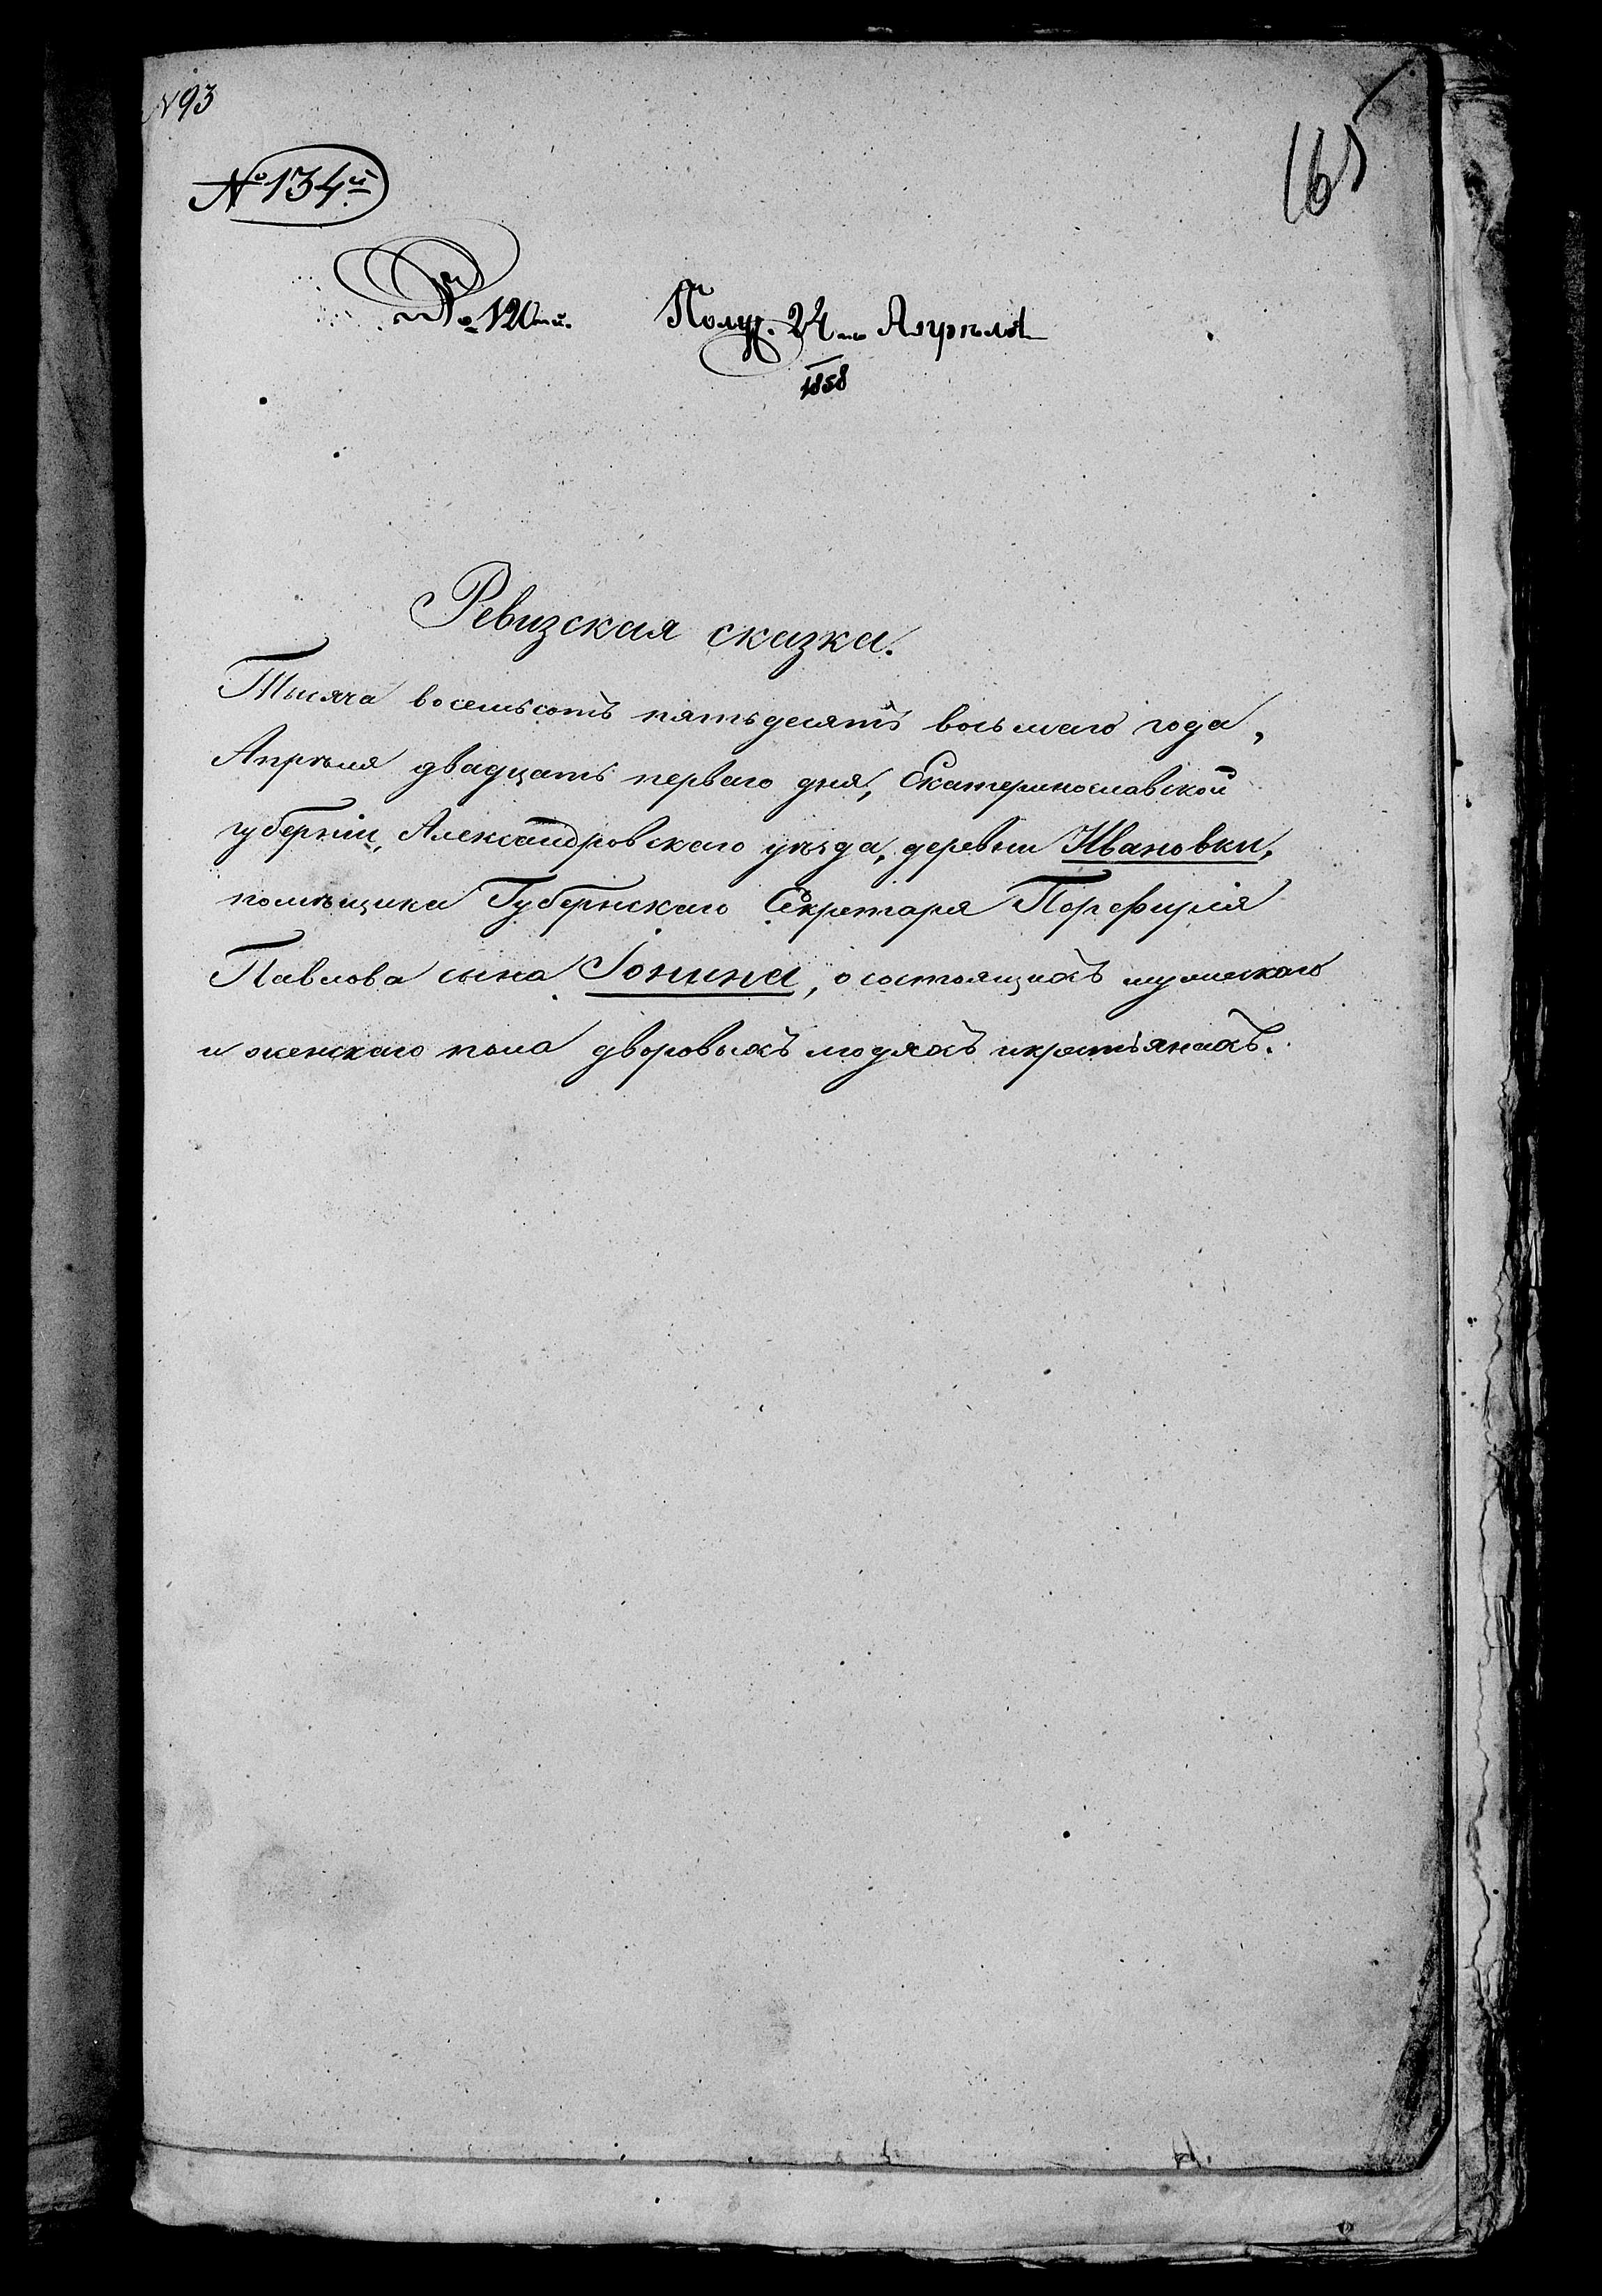 N 93
165
№ 134й
№ 120й.
Получ. 24го Апрѣля
1858
Ревизская сказка.
Тысяча восемьсотъ пятьдесятъ восьмаго года,
Апрѣля двадцать перваго дня, Екатеринославской
губерніи, Александровскаго уѣзда, деревни Ивановки,
помѣщика Губернскаго Секретаря Порфирія
Павлова сына Іонина, о состоящихъ мужескаго
и женскаго пола дворовыхъ людяхъ и крестьянахъ.